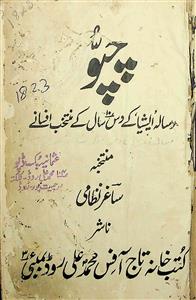 چپّو
1823
رسالہ ایشیا کے دس سال کے منتخب افسانے
منتخبہ
ساغر نظامی
ناشر
کتب خانہ تاج آفس محمد علی روڈ بمبئی ۳